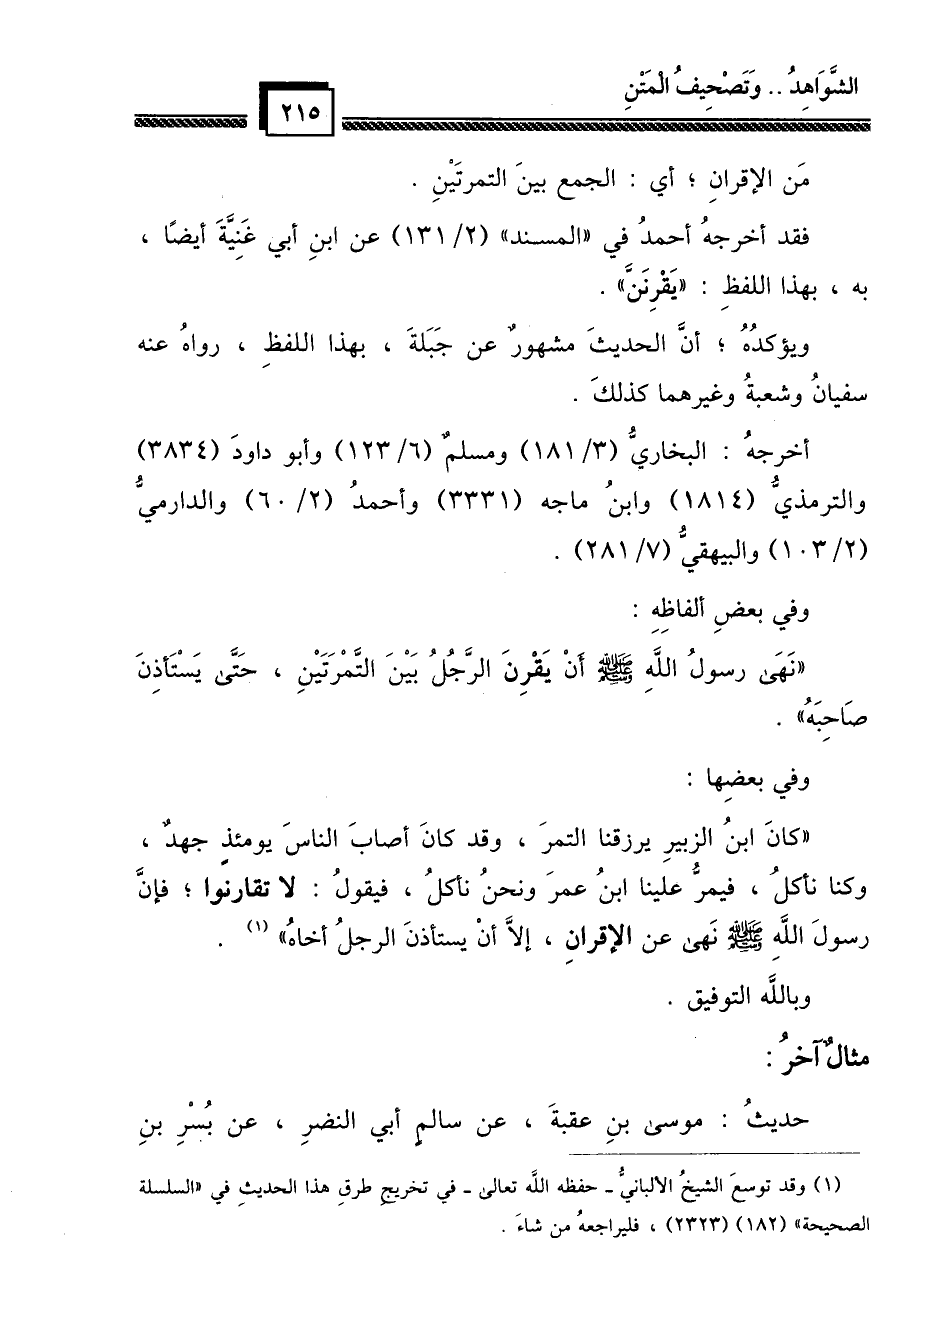 الشَّوَاهِدُ .. وَتَصْحِيفُ الْمَتْنِ
٢١٥
مَن الإقرانِ ؛ أي : الجمع بينَ التمرتَيْنِ .
فقد أخرجهُ أحمدُ في «المسند» (٢/ ١٣١) عن ابنِ أبي غَنِيَّةَ أيضًا ،
به ، بهذا اللفظِ : «يَقْرِنَنَّ» .
ويؤكدُهُ ؛ أنَّ الحديثَ مشهورٌ عن جَبَلةَ ، بهذا اللفظِ ، رواهُ عنه
سفيانُ وشعبةُ وغيرهما كذلكَ .
أخرجهُ : البخاريُّ (٣/ ١٨١) ومسلمٌ (٦/ ١٢٣) وأبو داودَ (٣٨٣٤)
والترمذيُّ (١٨١٤) وابنُ ماجه (٣٣٣١) وأحمدُ (٢/ ٦٠) والدارميُّ
(٢/ ١٠٣) والبيهقيُّ (٧/ ٢٨١) .
وفي بعضِ ألفاظِهِ :
«نَهَىٰ رسولُ اللَّهِ ﷺ أَنْ يَقْرِنَ الرَّجُلُ بَيْنَ التَّمْرَتَيْنِ ، حَتَّىٰ يَسْتَأْذِنَ
صَاحِبَهُ» .
وفي بعضِها :
«كانَ ابنُ الزبيرِ يرزقنا التمرَ ، وقد كانَ أصابَ الناسَ يومئذٍ جهدٌ ،
وكنا نأكلُ ، فيمرُّ علينا ابنُ عمرَ ونحنُ نأكلُ ، فيقولُ : لا تقارنوا ؛ فإنَّ
رسولَ اللَّهِ ﷺ نَهىٰ عن الإقرانِ ، إلاَّ أنْ يستأذنَ الرجلُ أخاهُ» (١) .
وباللَّه التوفيق .
مثالٌ آخرُ :
حديثُ : موسىٰ بنِ عقبةَ ، عن سالمٍ أبي النضرِ ، عن بُسْرِ بنِ
(١) وقد توسعَ الشيخُ الألبانيُّ ـ حفظه اللَّه تعالىٰ ـ في تخريجِ طرقِ هذا الحديثِ في «السلسلة
الصحيحة» (١٨٢) (٢٣٢٣) ، فليراجعهُ من شاءَ .